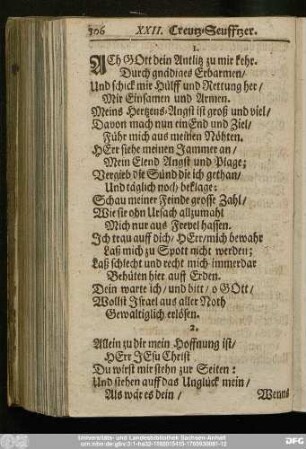 506 XXII. Creutz-Seufftzer.
1.
ACh GOtt dein Antlitz zu mir kehr.
Durch gnädiges Erbarmen/
Und schick mir Hülff und Rettung her/
Mir Einsamen und Armen.
Meins Hertzens-Angst ist groß und viel/
Davon mach nun ein End und Ziel/
Führ mich aus meinen Nöhten.
HErr siehe meinen Jammer an/
Mein Elend Angst und Plage;
Vergieb die Sünd die ich gethan/
Und täglich noch beklage:
Schau meiner Feinde grosse Zahl/
Wie sie ohn Ursach allzumahl
Mich nur aus Frevel hassen.
Ich trau auff dich/ HErr/ mich bewahr
Laß mich zu Spott nicht werden;
Laß schlecht und recht mich immerdar
Behüten hier auff Erden.
Dein warte ich/ und bitt/ o GOtt/
Wollst Israel aus aller Noth
Gewaltiglich erlösen.
2.
Allein zu dir mein Hoffnung ist/
HErr JEsu Christ
Du wirst mir stehn zur Seiten:
Und stehen auff das Unglück mein/
Als wär es dein/
Wenns
Universitäts- und Landesbibliothek Sachsen-Anhalt